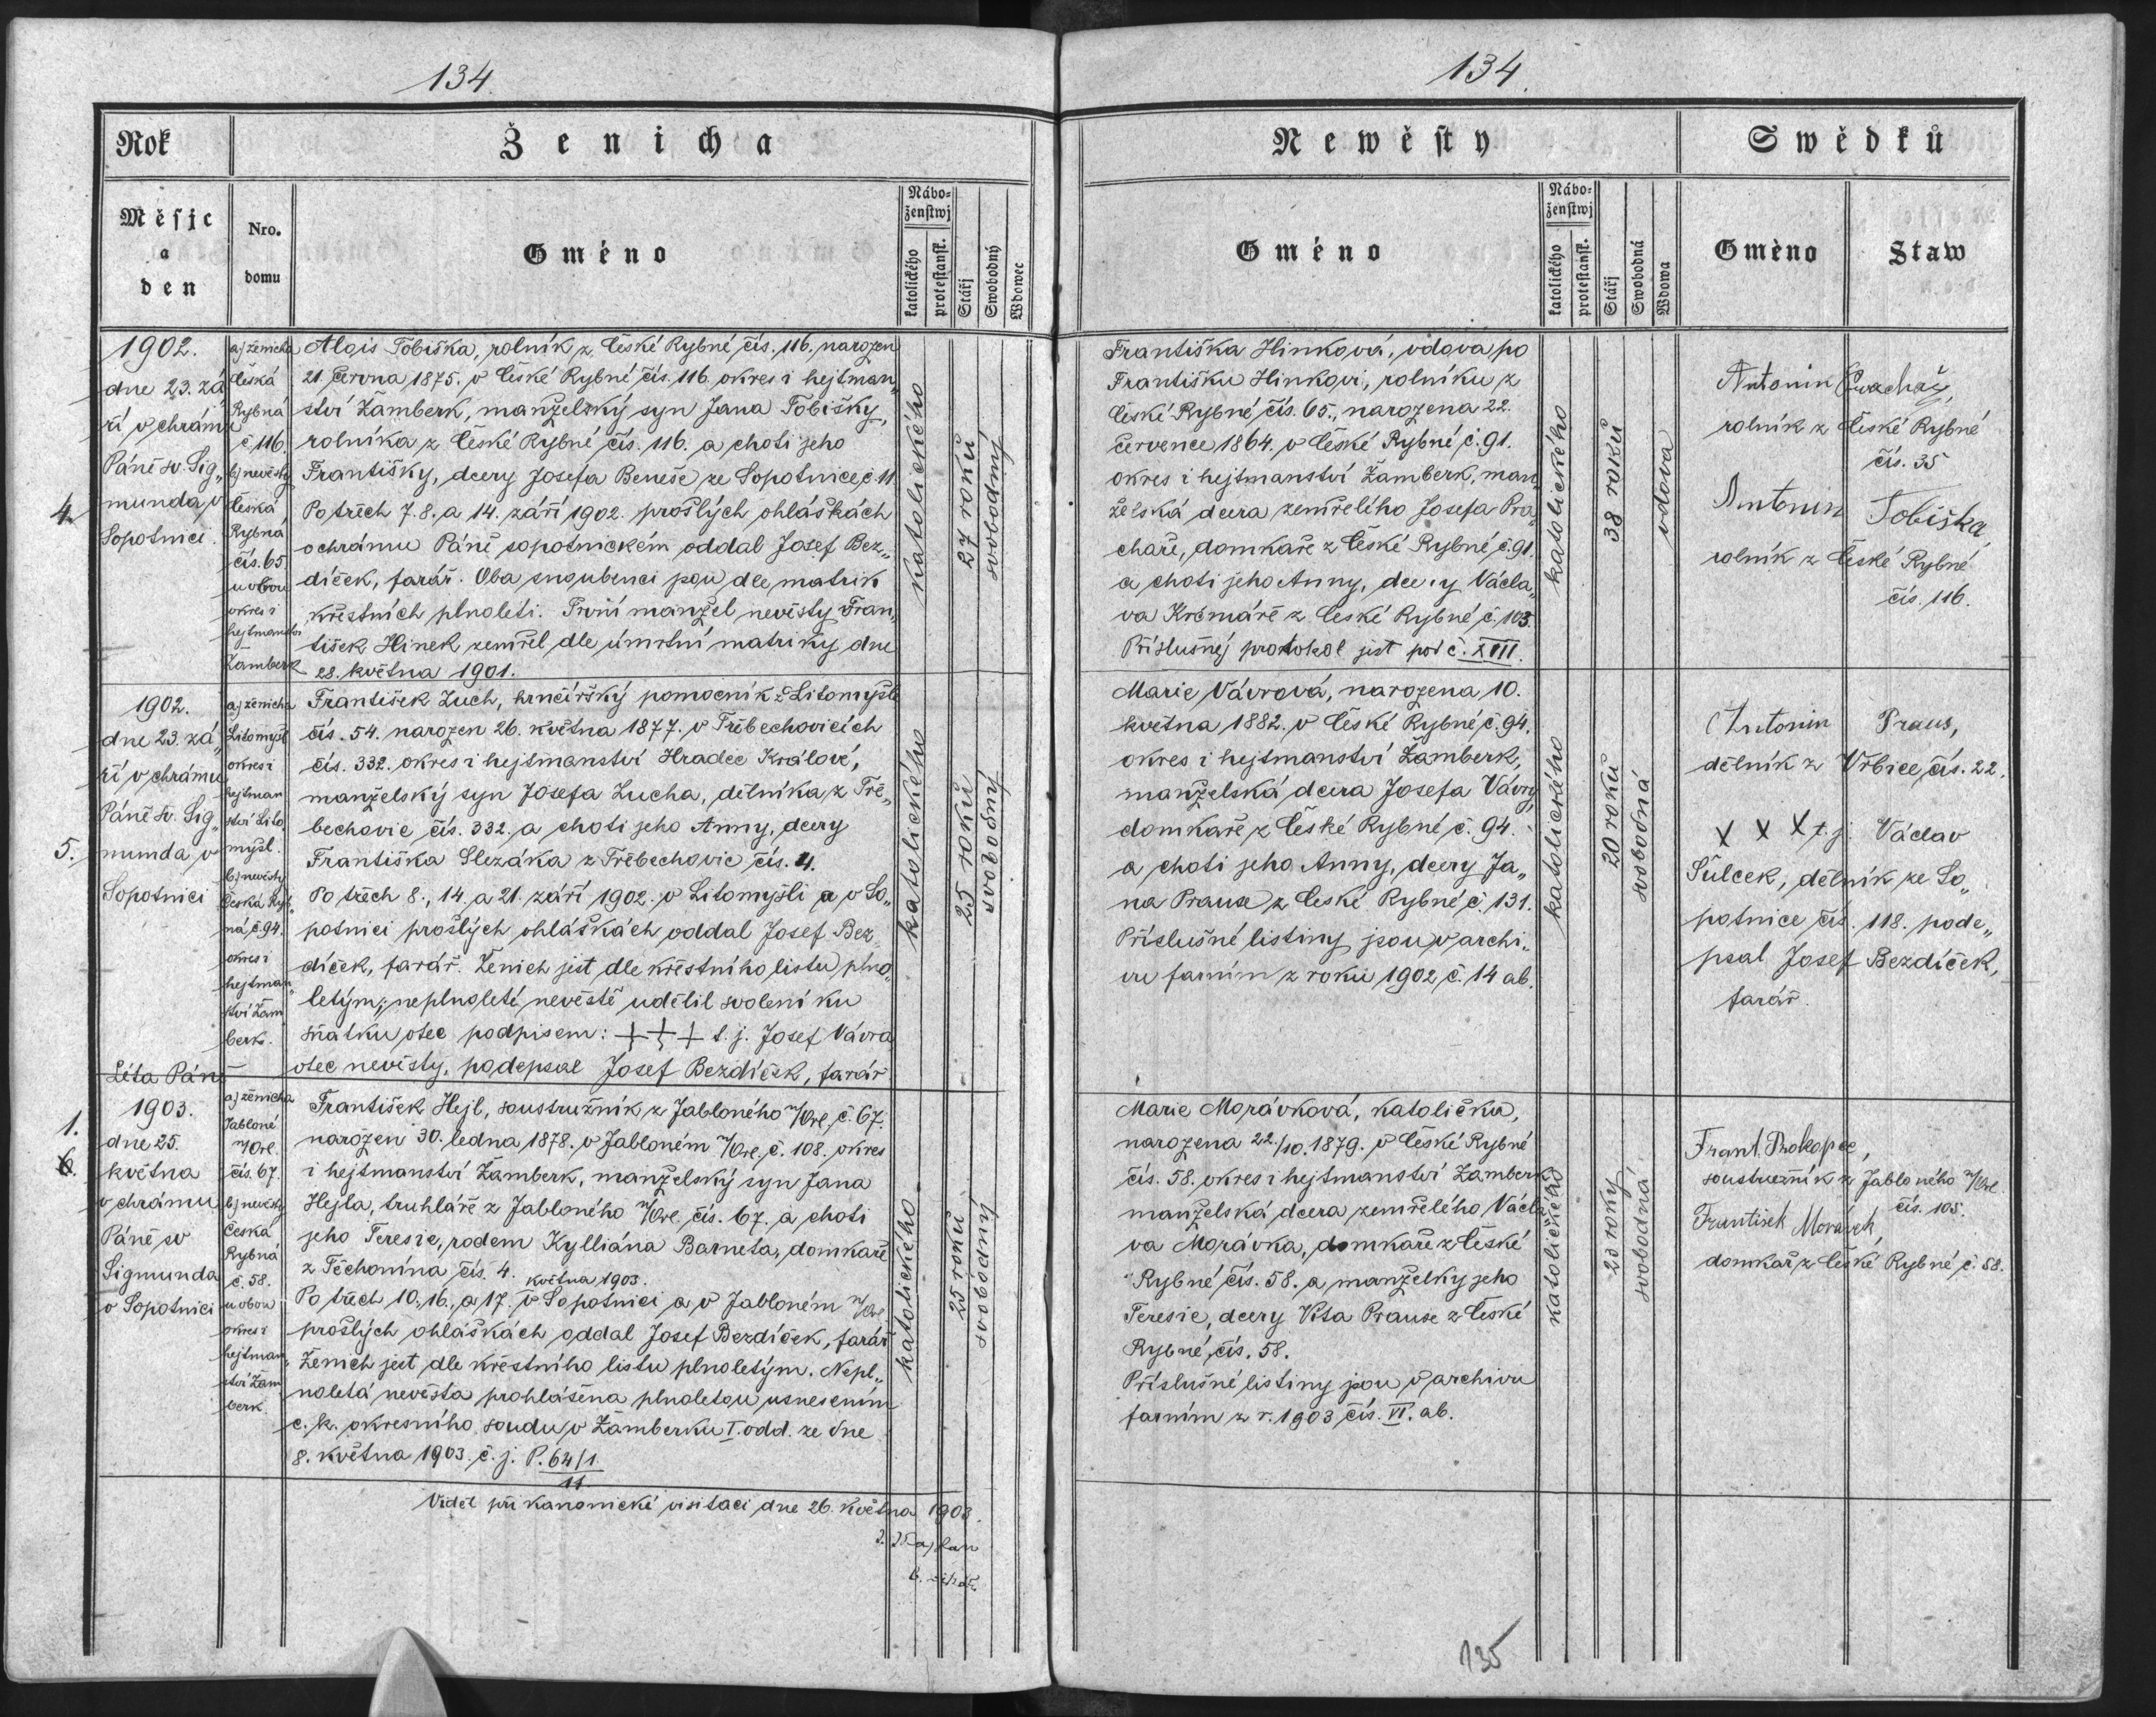 134.
134.
Rok
Ženicha
Měsjc
a
den
Nro.
domu
Gméno
Nábo-
ženstwj
katolického
protestansk.
Stářj
Swobodný
Wdowec
Newěsty
Swědků
Gméno
Nábo-
ženstwj
katolického
protestansk.
Stářj
Swobodná
Wdowa
Gméno
Staw
4.
1902.
dne 23. zá„
ří v chrámu
Páně sv. Sig„
munda v
Sopotnici.
a) ženicha
Česká
Rybná
č. 116.
b) nevěsty
Česká
Rybná
čís. 65
u obou
okres i
hejtmanství
Žamberk
Alois Tobiška, rolník z České Rybné čís. 116. narozen
21. června 1875. v České Rybné čís. 116. okres i hejtman„
ství Žamberk, manželský syn Jana Tobišky,
rolníka z České Rybné čís. 116. a choti jeho
Františky, dcery Josefa Beneše ze Sopotnice č. 11
Po třech 7. 8. a 14. září 1902. prošlých ohláškách
v chrámu Páně sopotnickém oddal Josef Bez„
díček, farář. Oba snoubenci jsou dle matrik
křestních plnoletí. První manžel nevěsty Fran„
tišek Hinek zemřel dle úmrtní matriky dne
28. května 1901.
katolického
27 roků
svobodný
Františka Hinková, vdova po
Františku Hinkovi, rolníku z
České Rybné čís. 65., narozena 22.
července 1864. v České Rybné č. 91.
okres i hejtmanství Žamberk, man„
želská dcera zemřelého Josefa Pra„
chaře, domkaře z České Rybné č. 91.
a choti jeho Anny, dcery Václa„
va Krčmáře z České Rybné č. 103.
Příslušný protokol jest pod č. XIII.
katolického
38 roků
vdova
Antonin
rolník z České Rybné
čís. 35
Antonin Tobiška,
rolník z České Rybné
čís. 116.
5.
1902.
dne 23. zá„
ří v chrámu
Páně sv. Sig„
munda v
Sopotnici
a) ženicha
Litomyšl
okres i
hejtman
ství Lito„
myšl.
b) nevěsty
Česká Ryb„
ná č. 94.
okres i
hejtman„
ství Žam
berk.
František Zuch, hrnčířský pomocník z Litomyšle
čís. 54. narozen 26. května 1877. v Třebechovicích
čís. 332. okres i hejtmanství Hradec Králové,
manželský syn Josefa Zucha, dělníka z Tře„
bechovic čís. 332. a choti jeho Anny, dcery
Františka Slezáka z Třebechovic čís. 4.
Po třech 8., 14. a 21. září 1902. v Litomyšli a v So„
potnici prošlých ohláškách oddal Josef Bez„
díček, farář. Ženich jest dle křestního listu plno„
letým; neplnoleté nevěstě udělil svolení ku
sňatku otec podpisem: +++ t. j. Josef Vávra
otec nevěsty, podepsal Josef Bezdíček, farář
katolického
25 roků
svobodný
Marie Vávrová, narozena 10.
května 1882. v České Rybné č. 94.
okres i hejtmanství Žamberk,
manželská dcera Josefa Vávry,
domkaře z České Rybné č. 94.
a choti jeho Anny, dcery Ja„
na Prause z České Rybné č. 131.
Příslušné listiny jsou v archi„
vu farním z roku 1902, č. 14 ab.
katolického
20 roků
svobodná
Antonin Praus,
dělník z Vrbice, čís. 22.
X X X t. j. Václav
Šulcek, dělník ze So„
potnice čís. 118. pode„
psal Josef Bezdíček,
farář.
Léta Páně
1.
6.
1903.
dne 25.
května
v chrámu
Páně sv
Sigmunda
v Sopotnici
a) ženicha
Jabloné
n/Orl.
čís. 67.
b) nevěsty
Česká
Rybná
č. 58.
u obou
okres i
hejtman„
ství Žam
berk
František Hejl, soustružník z Jabloného n/Orl. č. 67.
narozen 30. ledna 1878. v Jabloném n/Orl. č. 108. okres
i hejtmanství Žamberk, manželský syn Jana
Hejla, truhláře z Jabloného n/Orl. čís. 67. a choti
jeho Teresie, rodem Kylliána Barneta, domkaře
z Těchonína čís. 4.
května 1903.
Po třech 10., 16., a 17. v Sopotnici a v Jabloném n/Orl.
prošlých ohláškách oddal Josef Bezdíček, farář
Ženich jest dle křestního listu plnoletým. Nepl„
noletá nevěsta prohlášena plnoletou usnesením
c. k. okresního soudu v Žamberku I. odd. ze dne
8. května 1903. č. j. P. 64/1
11
katolického
25 roků
svobodný
Marie Morávková, katolička,
narozena 22./10. 1879. v České Rybné
čís. 58. okres i hejtmanství Žamberk
manželská dcera zemřelého Václa
va Morávka, domkaře z České
Rybné čís. 58. a manželky jeho
Teresie, dcery Víta Prause z České
Rybné, čís. 58.
Příslušné listiny jsou v archivu
farním z r. 1903 čís. VI. ab.
katolického
23 roky
svobodná
Frant. Prokopec,
soustružník z Jabloného n/Orl.
čís. 105.
Frantisek Morávek,
domkář z České Rybné č. 58.
Viděl při kanonické visitaci dne 26. května 1903.
J. Kaplan
b. vikář.
135